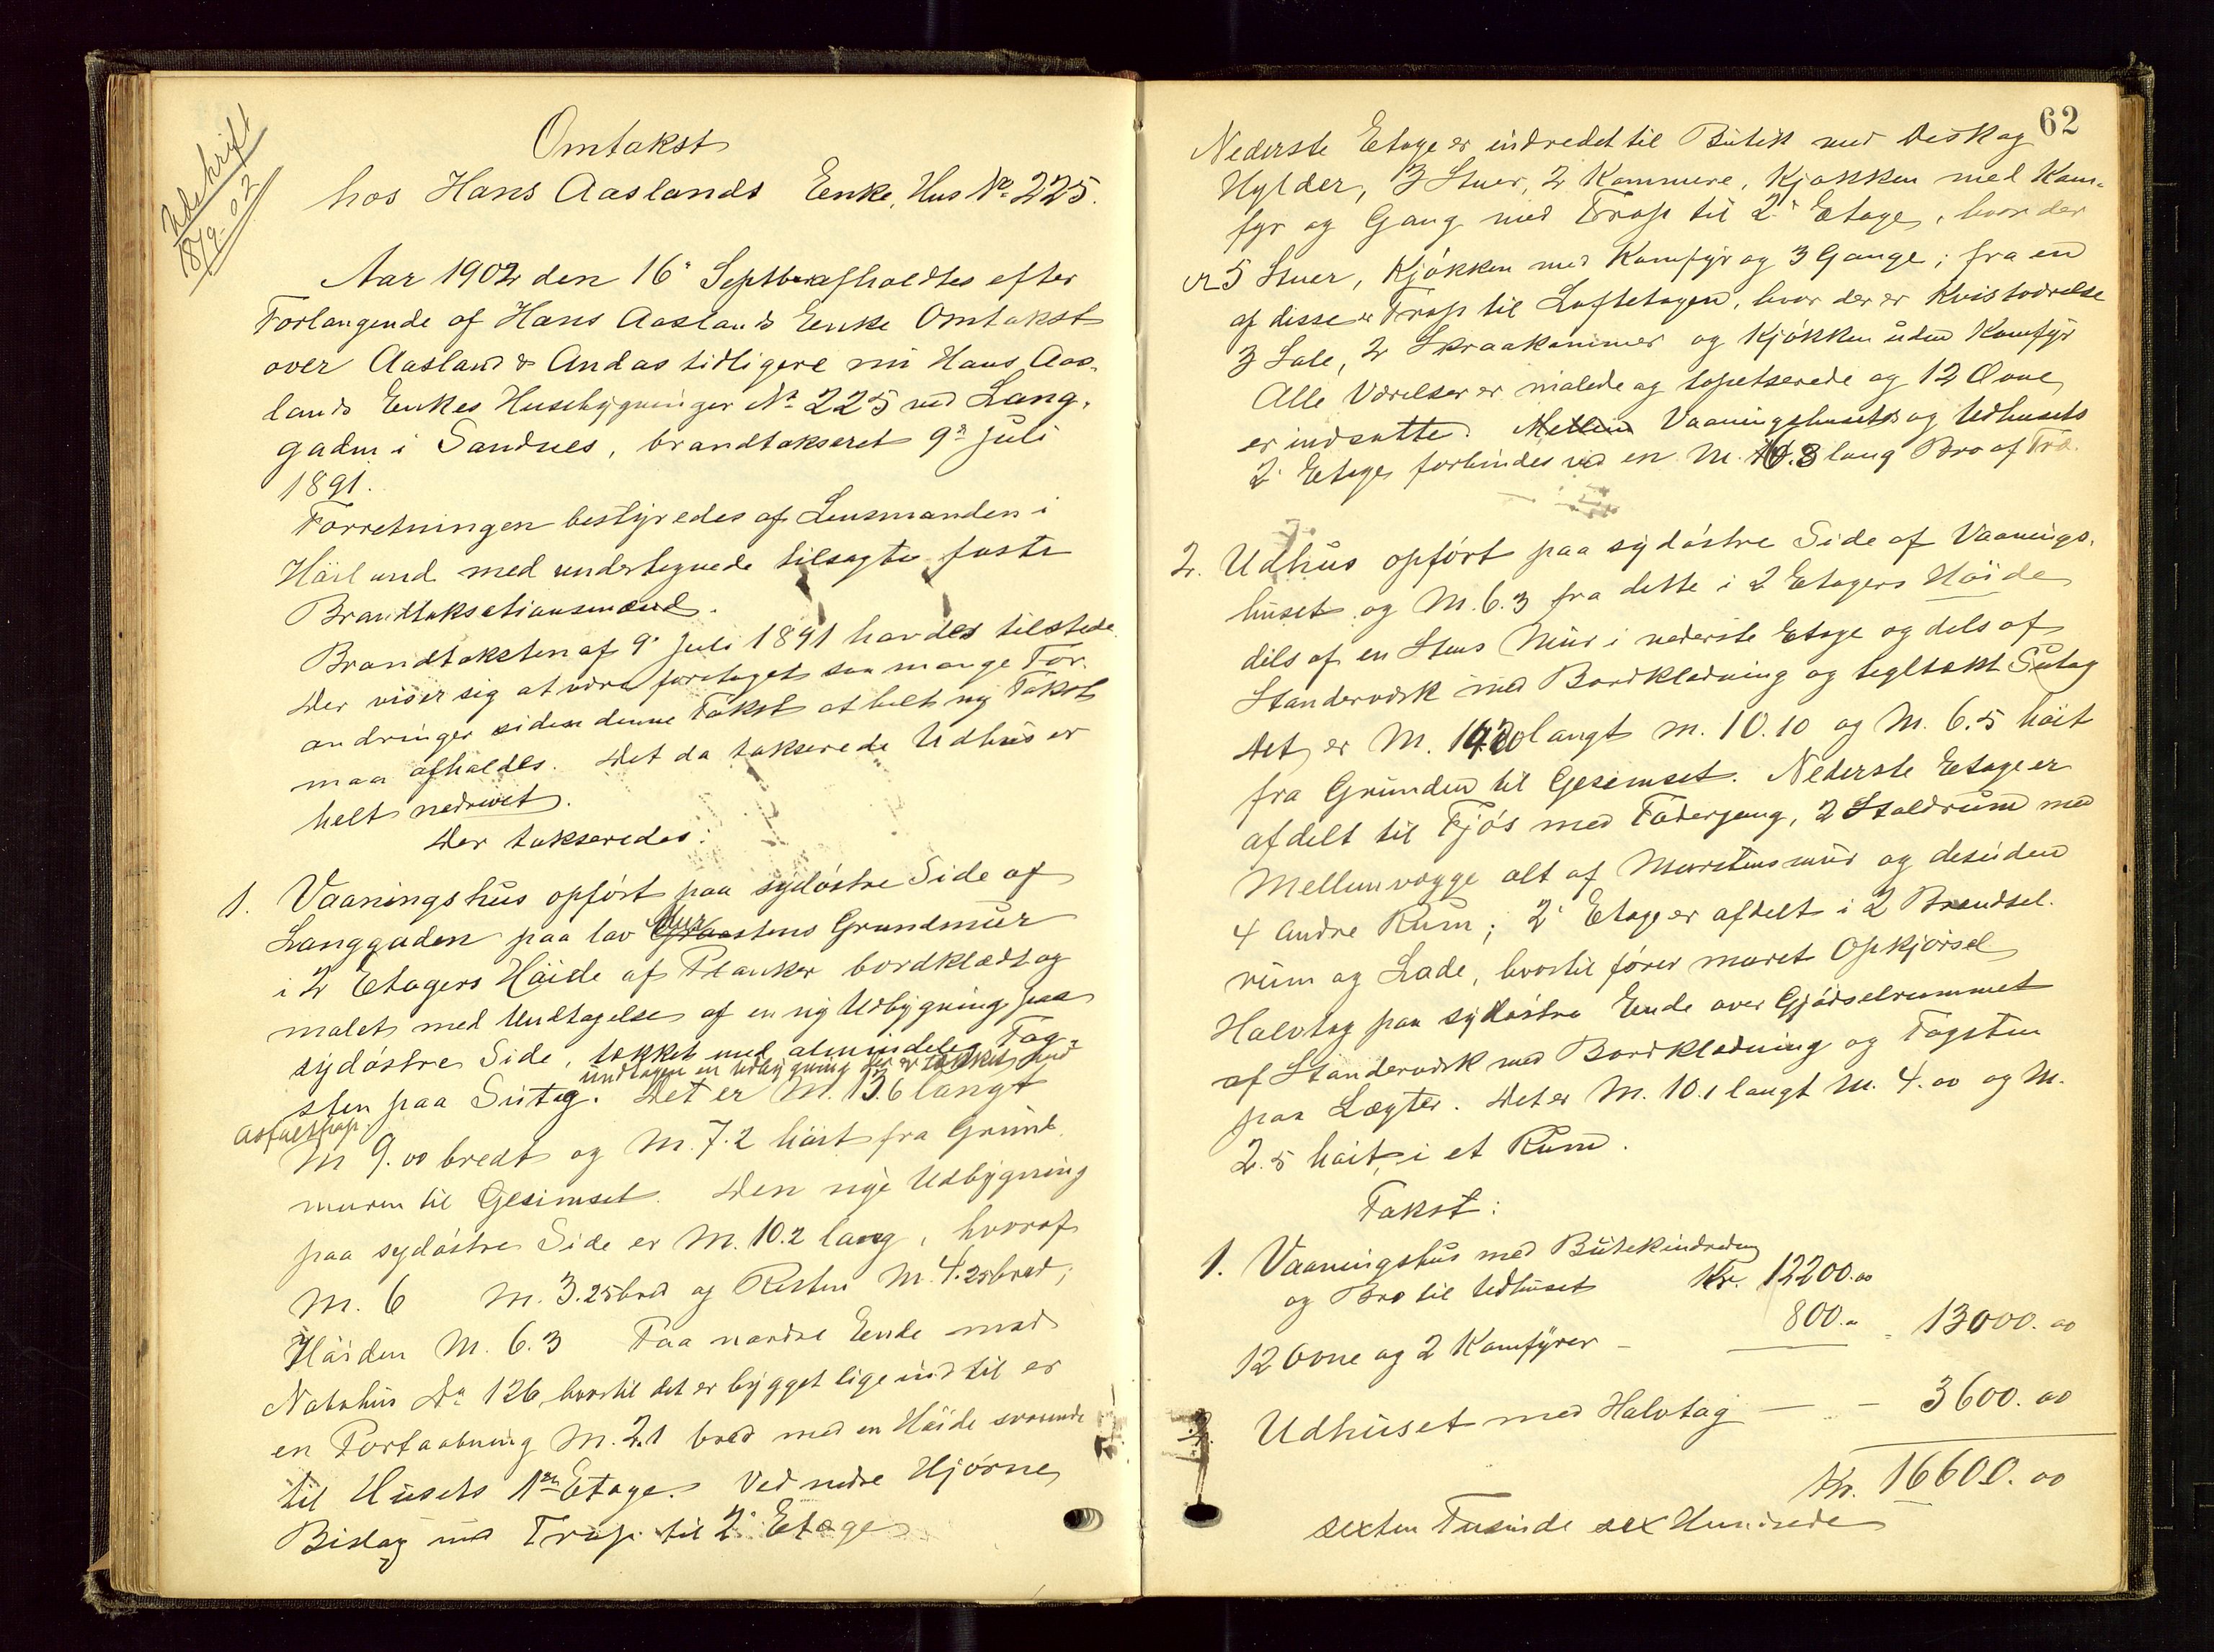 Udskrift
18/9 02
Omtakst
hos Hans Aaslands Enke, Hus No 225.
Aar 1902 den 16' Septber afholdtes efter
Forlangende af Hans Aaslands Enke Omtakst
over Aasland & Andas tidligere nu Hans Aas-
lands Enkes Husebygninger No 225 ved Lang-
gaden i Sandnes, brandtakseret 9de Juli
1891.
Forretningen bestyredes af Lensmanden i
Høiland med undertegnede tilsagte faste
Brandtakstionsmænd.
Brandtaksten af 9' Juli 1891 havdes tilstede
Der viser sig at være foretaget saa mange For-
andringer siden denne Takst at helt ny Takst
maa afholdes. Det da takserede Udhus er
helt nedrevet.
Der takseredes:
1. Vaaningshus opført paa sydøstre Side af
Langgaden paa lav Mur Graastens Grundmur
i 2 Etagers Høide af Planker bordklædt og
malet med Undtagelse af en ny Udbygning paa
sydøstre Side, tækket med almindelig Tag-
undtagen en udbygning der er tækket med
sten paa Sutag. Det er M. 13.6 langt
asfaltpap.
M 9.00 bredt og M. 7.2 høit fra Grund
muren til Gesimset. Den nye Udbygning
paa sydøstre Side er M. 10.2 lang, hvoraf
M. 6 M. 3.25 bred og Resten M. 4.25 bred;
Høiden M. 6.3 Paa nordre Ende mod
Nabohus No 126, hvortil det er bygget lige ind til er
en Portaabning M. 2.1 bred med en Høide svarende
til Husets 1ste Etage. Ved nedre Hjørne
Bislag med Trap til 2' Etage
62
Nederste Etage er indredet til Butik med Desk og
Hylder, 3 Stuer, 2 Kammere, Kjøkken med Kom-
fyr og Gang med Trap til 2' Etage, hvor der
er 5 Stuer, Kjøkken med Komfyr og 3 Gange; fra en
af disse er Trap til Loftetagen, hvor der er Kvistværelse
3 Sale, 2 Skraakammer og Kjøkken uden Komfyr
Alle Værelser er malede og tapetserede og 12 Ovne
er indsatte. Mellem Vaaningshusets og Udhusets
2' Etage forbindes ved en M. 6.3 lang Bro af Træ.
2. Udhus opført paa sydøstre Side af Vaanings-
huset og M. 6.3 fra dette i 2 Etagers Høide
dels af en Stens Mur i nederste Etage og dels af
Standerværk med Bordklædning og tegltækt Sutag
Det er M. langt m. 10.10 og M. 6.5 høit
fra Grunden til Gesimset. Nederste Etage er
afdelt til Fjøs med Fodergang, 2 Staldrum med
Mellemvægge alt af Murstensmur og desuden
4 andre Rum; 2' Etage er afdelt i 2 Brændsel-
rum og Lade, hvortil fører muret Opkjørsel
Halvtag paa sydøstre Ende over Gjødselrummet
af Standerværk med Bordklædning og Tagsten
paa Lægter. Det er M. 10.1 langt M. 4.00 og M.
2.5 høit, i et Rum.
Takst:
1. Vaaningshus med Butikindredning
og Bro til Udhuset Kr. 12200.00
12 Ovne og 2 Komfyrer - 800.00 - 13000.00
2. Udhuset med Halvtag — - 3600.00
Kr. 16600.00
sexten Tusinde sex Hundrede